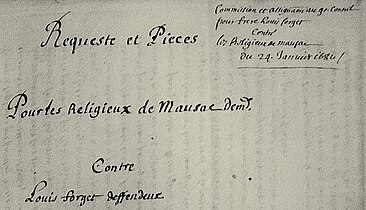 Commission et assignation au gr. Conseil
pour frere Louis forget
Contre
les Religieux de mausac
du 24. Januier 1681
Requeste et Pieces
Pour les Religieux de Mausac dem.rs
Contre
Louis forget deffendeur